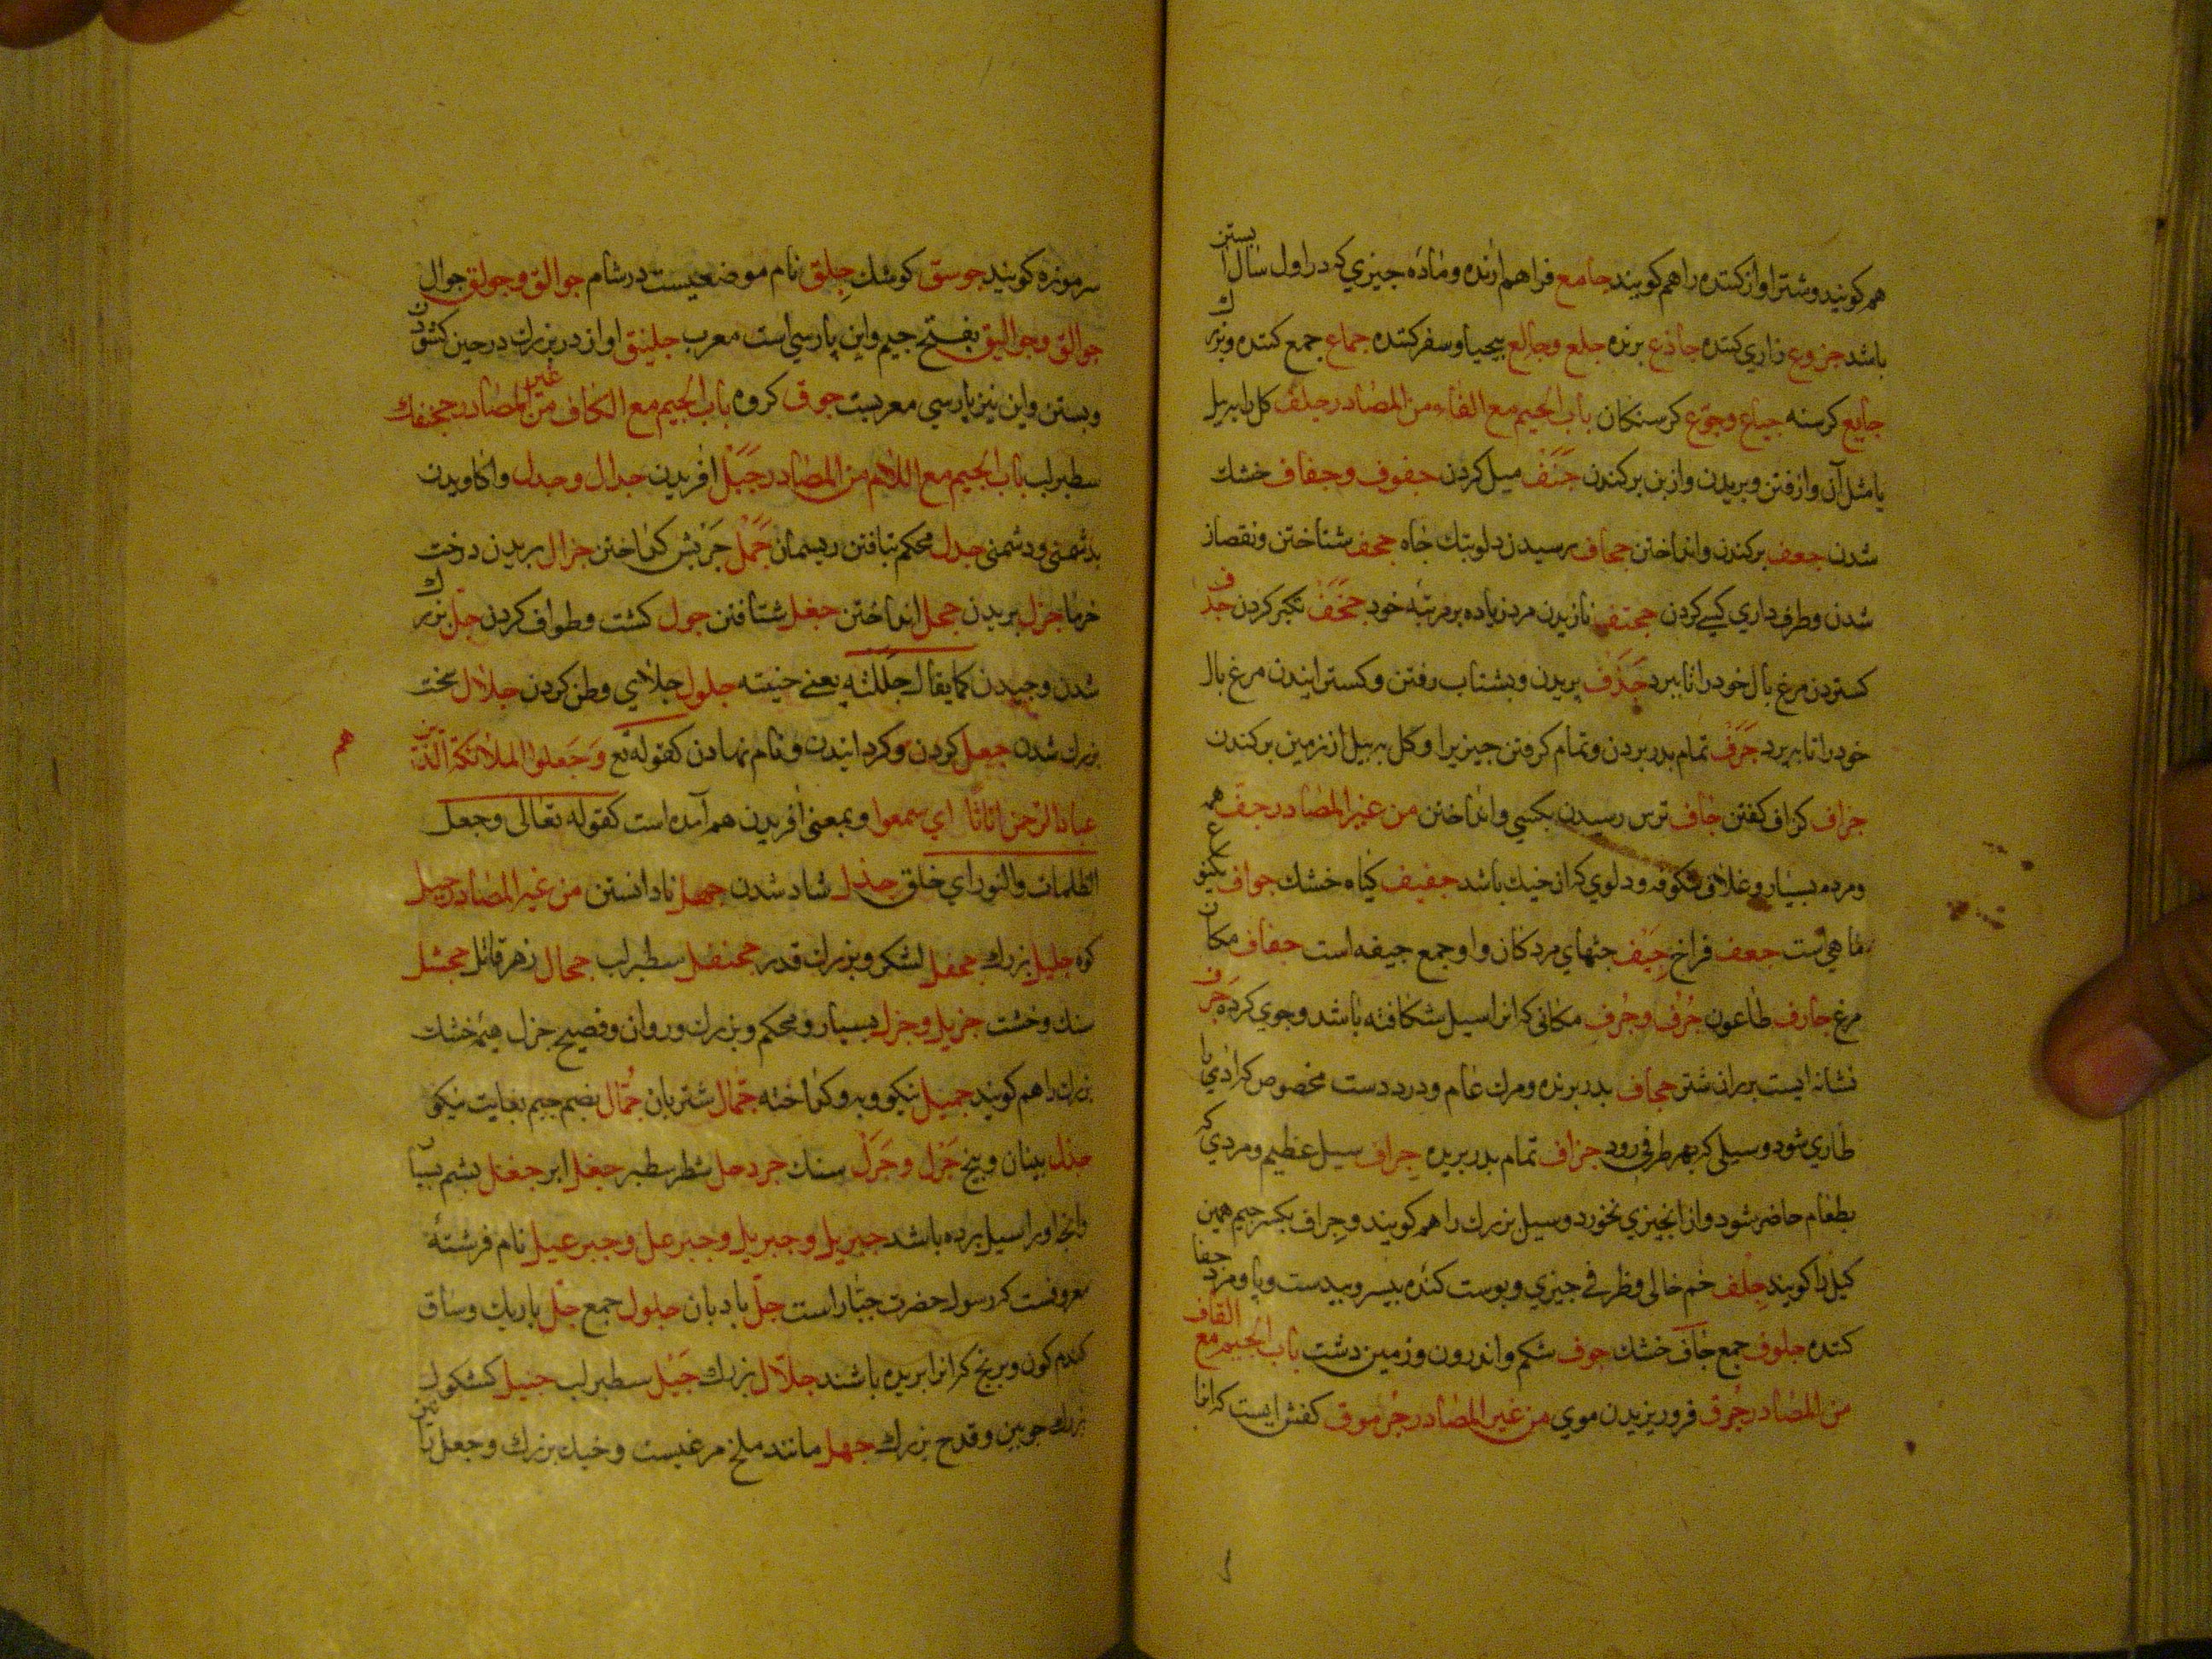 هم کویند وشتر اواز کننده را هم کویند جامع فراهم ارنده وماده چیزي که در اول سال ابستن
باشد جزوع زاري کننده جاذع برنده جلع وجالع بیحیا وسفر کننده جماع جمع کننده وبزرك
جایع کرسنه جیاع وجوّع کرسنکان باب الجیم مع الفاء من المصادر جلف کل را ببیل
یا مثل آن وازفتن وبریدن وازبن برکندن جَنَفْ میل کردن جفوف وجفاف خشك
شدن جعف برکندن وانداختن جحاف برسیدن دلو بتك چاه جحف شتاختن ونقصان
شدن وطرف داري کسی کردن جحتف نازیدن مرد زیاده بر مرتبه خود جَخَفْ تکبر کردن جذف
کستردن مرغ بال خود را تا ببرد جَذَف پریدن وبشتاب رفتن وکسترانیدن مرغ بال
خود را تا ببرد جَرَفْ تمام بدر بردن وتمام کرفتن چیزیرا وکل ببیل از زمین برکندن
جزاف کزاف کفتن جاف ترس رسیدن بکسی وانداختن من غیر المصادر جفّ همه
ومرد بسیار وغلاف شکوفه ودلوي که از خیك باشد جفیف کیاه خشك جواف بکنوع
ماهی است جعف فراخ جِیَف جثهاي مردکان واو جمع جیفه است جفاف مکان
مرغ جارف طاعون جُرُفْ وجُرف مکانی که انرا سیل شکافته باشد وجوي کرده جرف
نشانه ایست بر ران شتر جحاف بدر برنده ومرك عام ودرد دست مخصوص که ادمی را
طاري شود وسیلی که بهر طرفی رود جزاف تمام بدر بریده جراف سیل عظیم ومردي که
بطعام حاضر شود واز انچیزي نخورد وسیل بزرك را هم کویند وجراف بکسر جیم همین
کیل را کویند جِلْف خم خالی وظرفی چیزي وپوست کنده بیسر وبیدست وپا ومرد جفا
کننده جلوف جمع جاف خشك جوف شکم واندرون وزمین دشت باب الجیم مع القاف
من المصادر جُرق فروریزیدن موي من غیر المصادر جُرموق کفش ایست که انرا
سرموزه کویند جوسق کوشك جِلِق نام موضعیست در شام جوالق وجولق جوال
جوالق وجوالیق بفتح جیم واین پارسی است معرب جلینق اواز در بزرك در حین کشودن
وبستن واین نیز پارسی معربست جوق کروه باب الجیم مع الکاف من غیر المصادر جخنفك
سطبر لب باب الجیم مع اللام من المصادر جَبْل افریدن جدال وجدل واکاویدن
بدشمنی ودشمنی جدل محکم تبافتن ریسمان جَمْل چربش کداختن جزال بریدن درخت
خرما جزل بریدن جحل انداختن جغل شتافتن جول کشت وطواف کردن جلّ بزرك
شدن وچیدن کما یقال جَلَلْتُه یعنی چنیته جلول جلاي وطن کردن جلال سخت
بزرك شدن جعل کردن وکردانیدن ونام نهادن کقوله تع وَجَعلوا الملائکة الّذین هم
عباد الرّحمن اناثًا اي سمعوا وبمعنی افریدن هم آمده است کقوله تعالی وجعل
الظلمات والنور اي خلق جذل شاد شدن جهل نادانستن من غیر المصادر جبل
کوه جلیل بزرك جحفل لشکر وبزرك قدر جحنفل سطبر لب جحال زهر قاتل جحشل
سنك وخشت جزیل وجزل بسیار ومحکم وبزرك وروان وفصیح جزل هیمه خشك
بزرك را هم کویند جمیل نیکو وپه وکداخته جَمّال شتربان جُمّال بضم جیم بغایت نیکو
جذل بینان وبیخ جَزْل وجَرَلْ سنك جردحل شطر سطبر جفل ابر جغئل پشم بسیا
وانچه اورا سیل برده باشد جبریل وجبریل وجبرعل وجبرعیل نام فرشتهٔ
معروفست که رسول حضرت جبّار است جلّ بادبان جلول جمع جلّ باریك وساق
کندم کون وبرنج که انرا بریده باشند جلال بزرك جَبْل سطبر لب جنبل کشکول
بزرك چوبین وقدح بزرك جهل مانند ملخ مرغیست وخیك بزرك وجعل تا